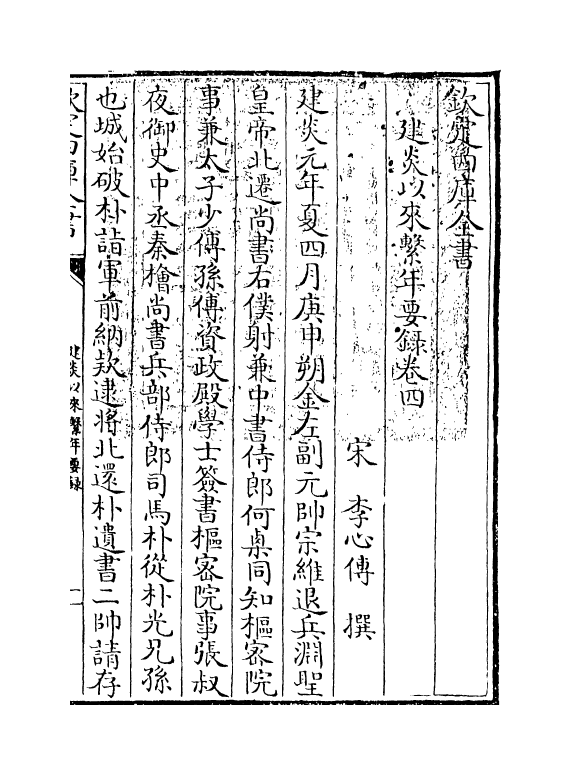 欽定四庫全書
建炎以來繫年要錄卷四
宋 李心傳 撰
建炎元年夏四月庚申朔金左副元帥宗維退兵淵聖
皇帝北遷尚書右僕射兼中書侍郎何㮚同知樞密院
事兼太子少傅孫傅資政殿學士簽書樞密院事張叔
夜御史中丞秦檜尚書兵部侍郎司馬朴從朴光兄孫
也城始破朴詣軍前納款逮將北還朴遺書二帥請存
建炎以來繫年要錄